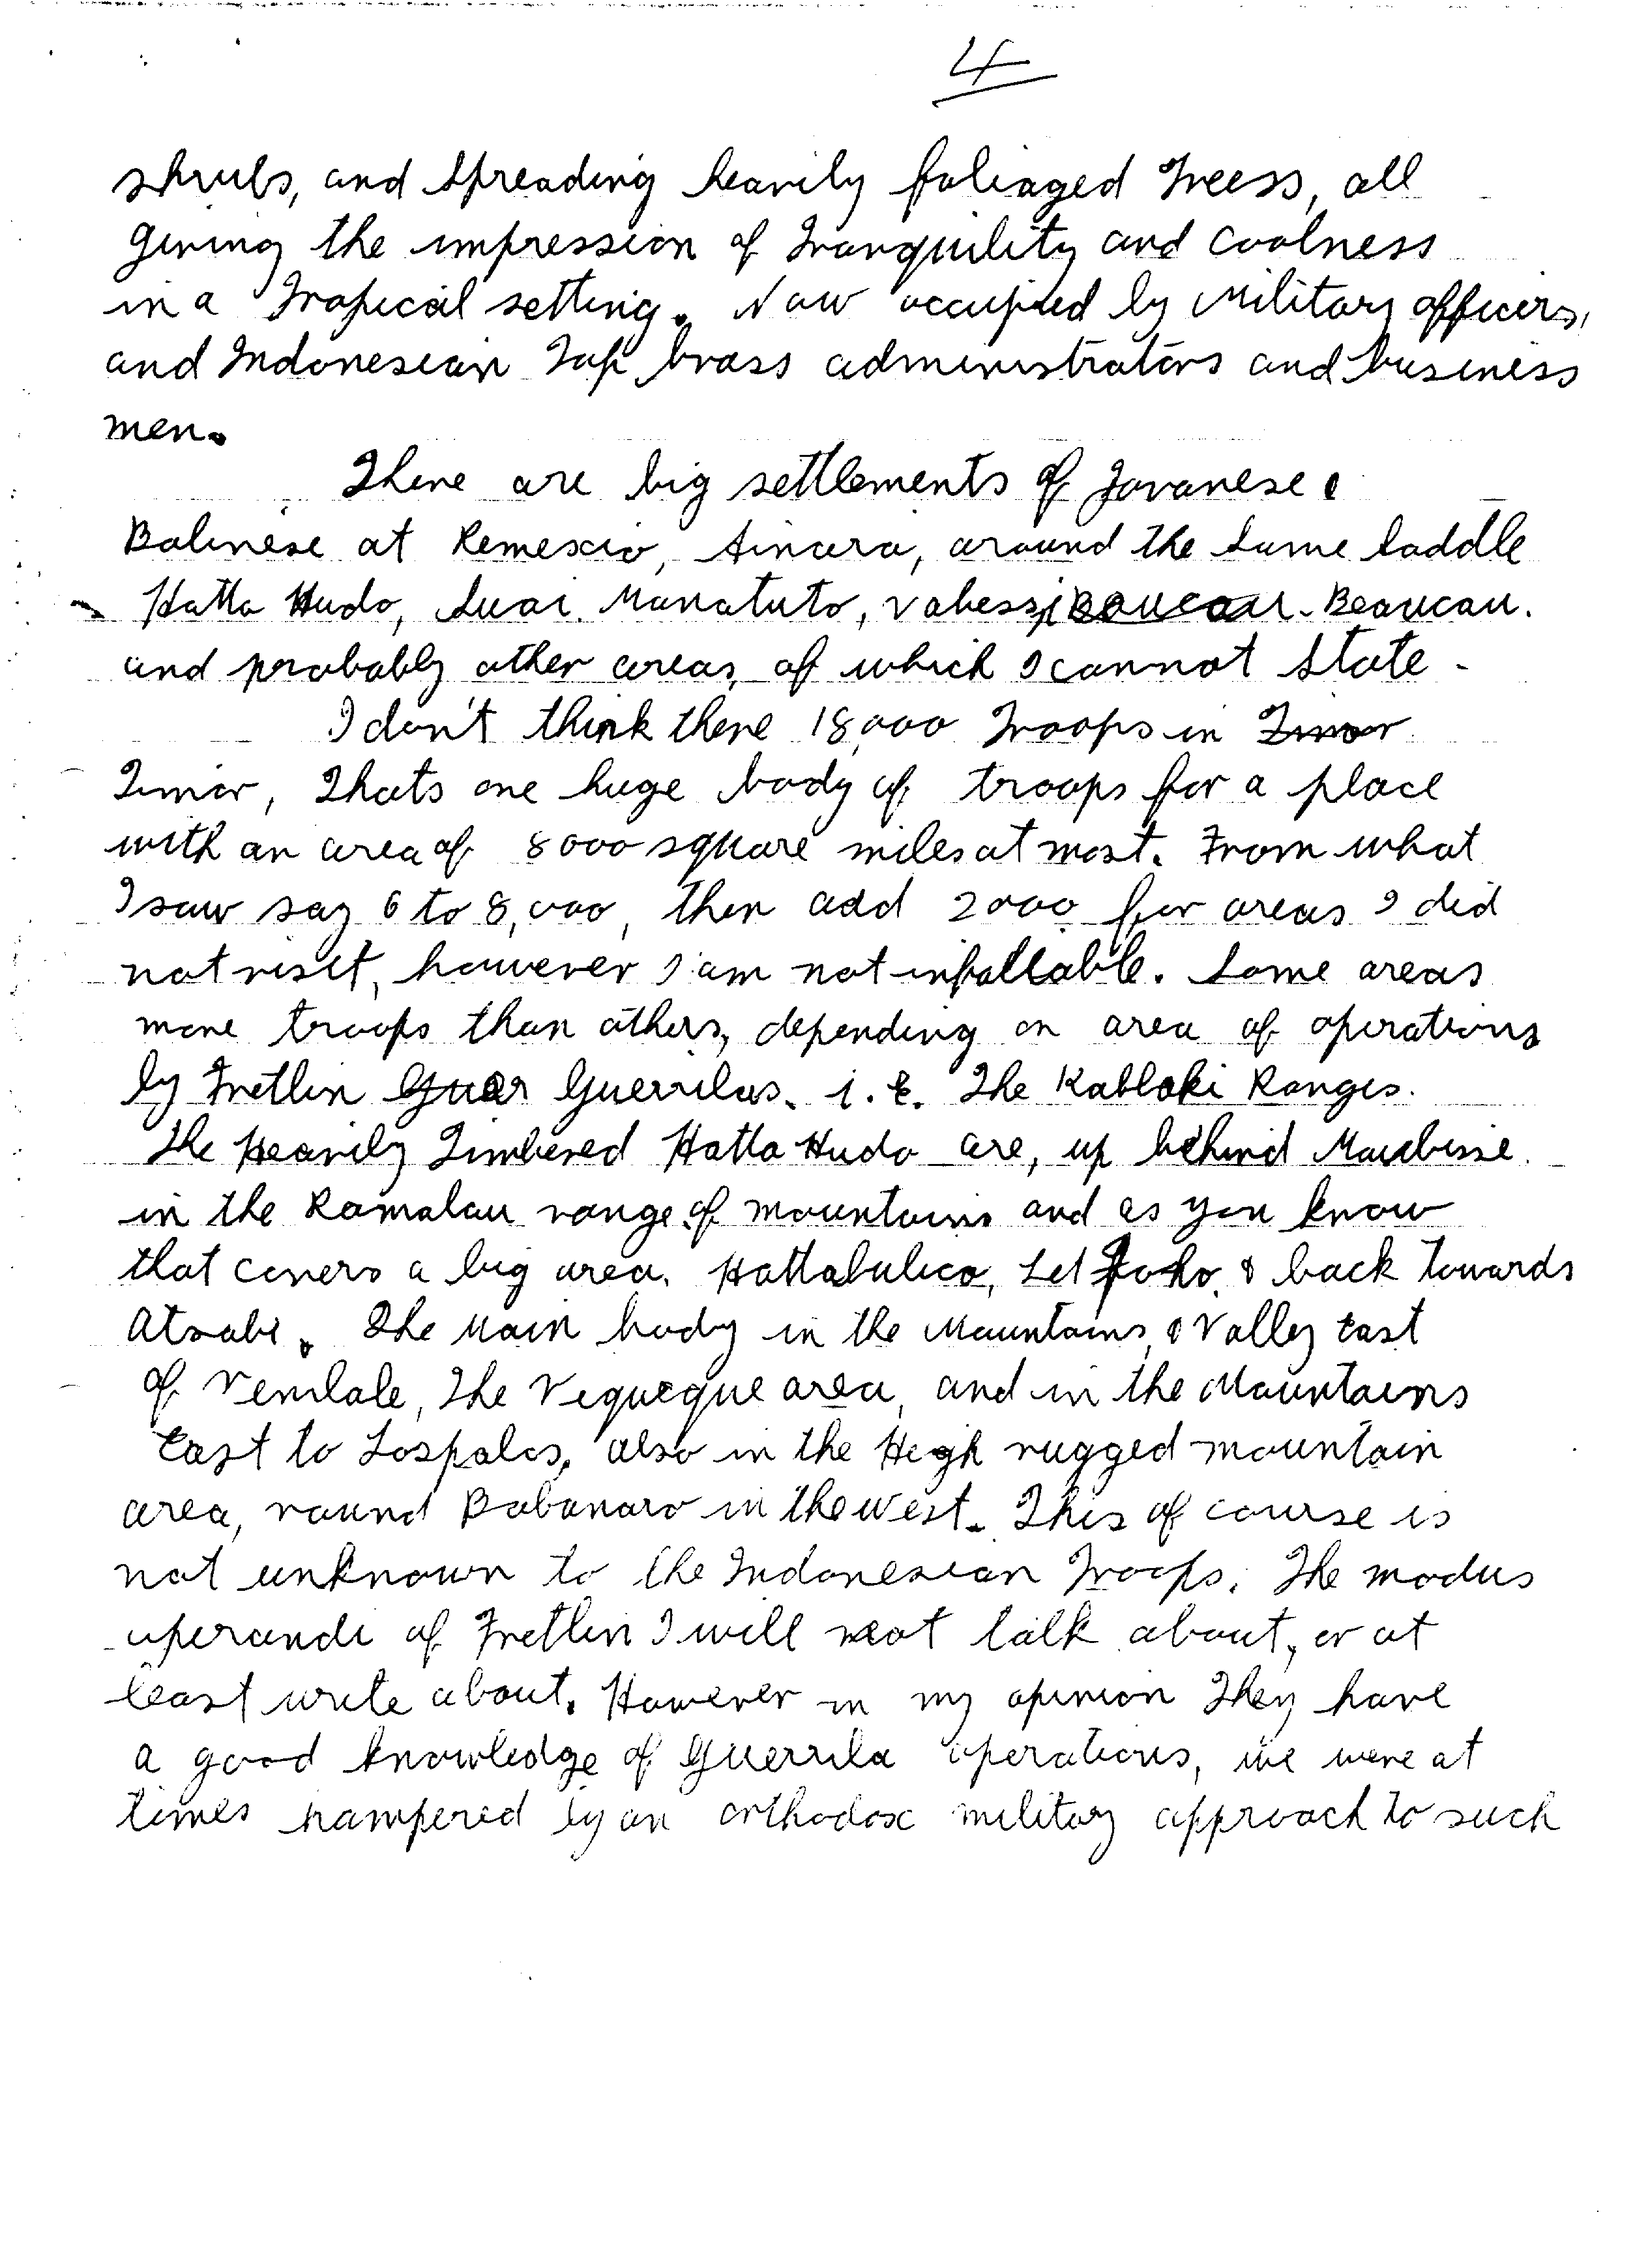 4
shrubs, and spreading heavily foliaged Trees, all
giving the impression of Tranquility and coolness
in a Tropical setting. Now occupied by Military officers,
and Indonesian Top brass administrators and business
men.
There are big settlements of Javanese &
Balinese at Remexio, Ainara, around the same saddle
Hatta Hudo, Suai, Manatuto, Vabessi Beaucau.
and probably other areas, of which I cannot state -
I don't think there 18,000 Troops in Timor
Timor, Thats one huge body of troops for a place
with an area of 8000 square miles at most. From what
I saw say 6 to 8,000, then add 2000 for areas I did
not visit, however I am not infallable. Some areas
more troops than others, depending on area of operations
by Fretlin Guer Guerrilas. i.e. The Kablaki Ranges.
The Heavily Timbered Hatta Hudo are, up behind Maubisse
in the Ramalau range of mountains and as you know
that covers a big area. Hattabulico, Let Foho & back towards
Atsabi. The Main body in the Mountains & Valley East
of Venilale, The Vequeque area, and in the Mountains
East to Lospalos, also in the High rugged mountain
area, round Bobanaro in the West. This of course is
not unknown to the Indonesian Troops. The modus
operandi of Fretlin I will not talk about, or at
least write about. However in my opinion They have
a good knowledge of Guerrila operations, we were at
times hampered by an orthodox military approach to such